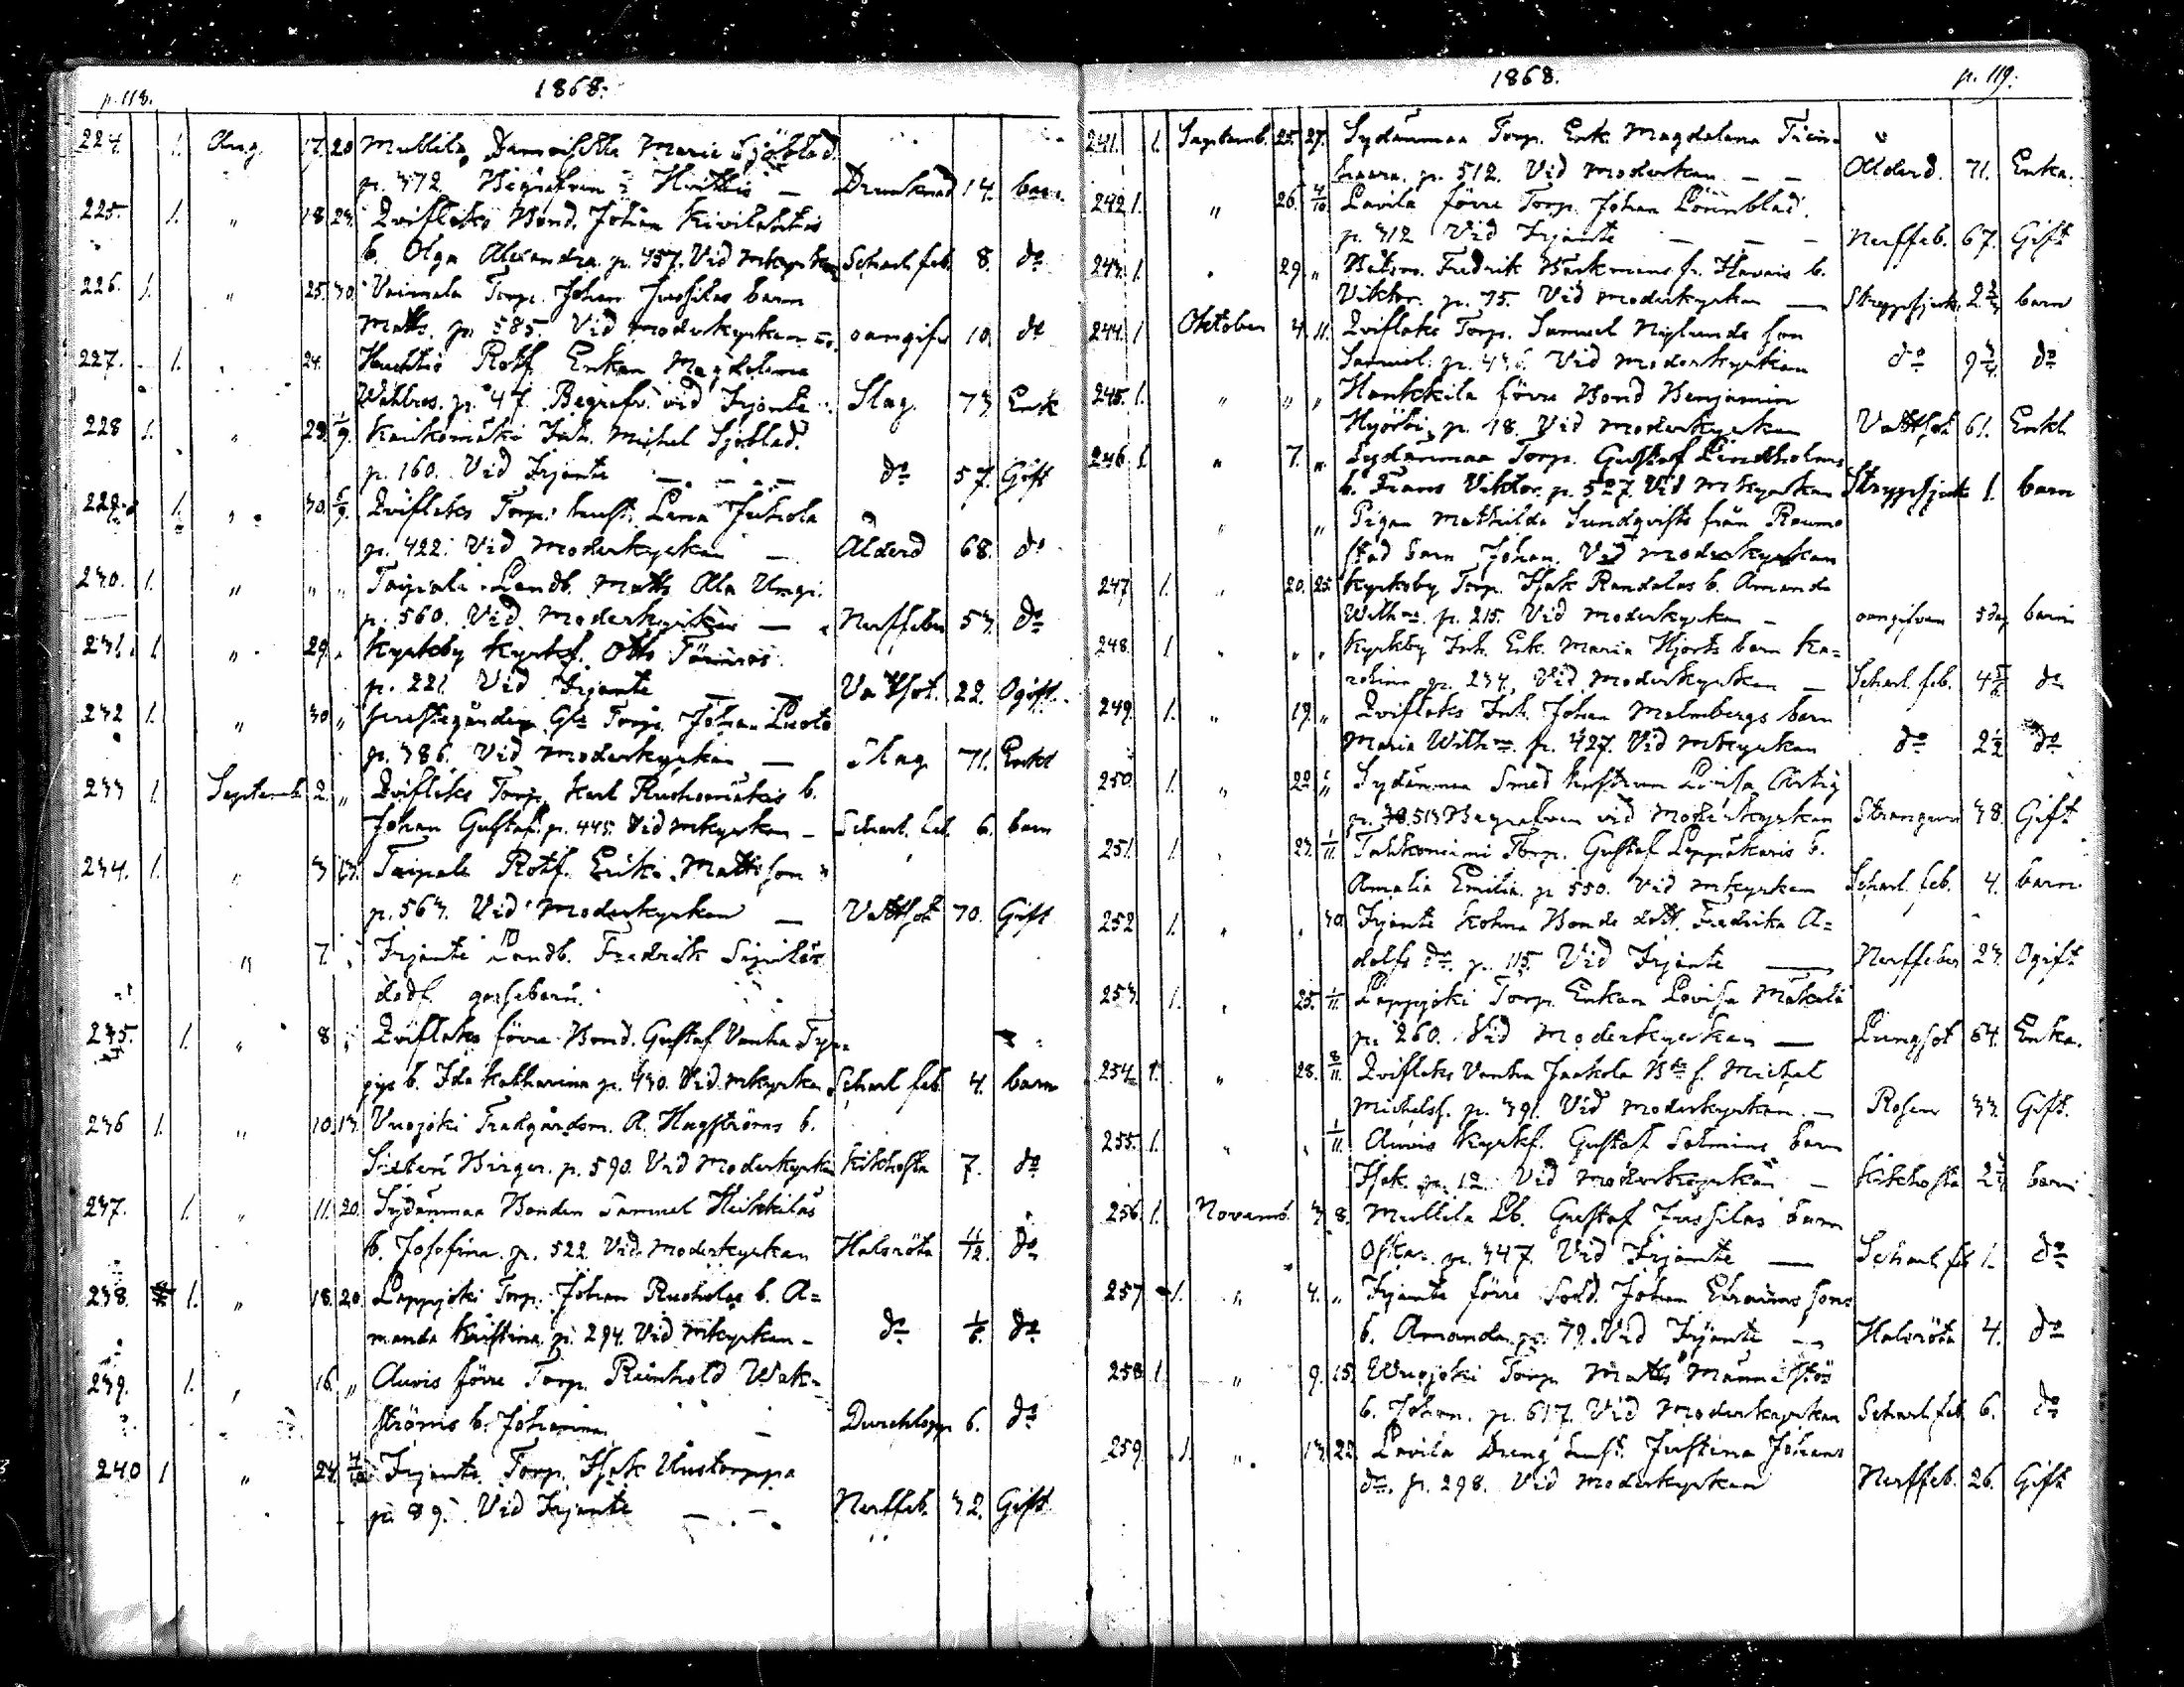 p. 118. 1868.
224. 1. Aug. 17. 20 Mullila, Maria Sjöblad.
p. 372. Begrafven i Hvittis — Drunknad 14. barn
225. 1. " 18. 23. Qviflaks Bond. Johan Kivilahtis
b. Olga Alexandra. p. 457. Vid mkyrkan Scharl. feb. 8. do
226. 1. " 25. 30. Torp. Johan Jussilas barn
Matts. p. 585. Vid moderkyrkan oangifv. 10. do
227. 1. " 24. Rotf. Enkan Magdalena
p. 47. Begrafv. vid Irjante Slag. 73 Enk
228 1. " 29. 1/9. Inh. Michel Sjöblad.
p. 160. Vid Irjante — — — do 57. Gift
229. 1. " 30. 6/9. Qviflaks Torp. hust. Lena Juhola
p. 422. Vid Moderkyrkan — Ålderd 68. do
230. 1. " " " Taipale Landb. Matts Ala Ungi.
p. 560. Vid Moderkyrkan — Nerffeber 53. do
231. 1. " 29. " Kyrkoby Otto
p. 221. Vid Irjante — — Vattsot. 22. Ogift.
232 1. " 30 " Torp. Johan Luoto
p. 386. Vid moderkyrkan — Slag 71. Enkl
233 1. Septemb. 2. " Qviflaks Torp. Karl Ruohomäkis b.
Johan Gustaf. p. 445. Vid mkyrkan — Scharl. feb. 6. barn
234. 1. " 3 13. Taipale Rotf. Erik Mattsson
p. 563. Vid Moderkyrkan — Vattsot 70. Gift
" 7. " Irjante Landb. Fredrik Sipiläs
dödf. gossebarn.
235. 1. " 8. " Qviflaks förre Bond. Gustaf Vanha
b. Ida Katharina p. 430. Vid. mkyrka Scharl. feb. 4. barn
236 1. " 10. 13. Vuojoki Trädgårdsm. A. Hagströms b.
Birger. p. 590. Vid Moderkyrkan Kikhosta 7. do
237. 1. " 11. 20. Sydänmaa Bonden Samuel Heikkiläs
b. Josefina. p. 522. Vid. Moderkyrkan Halsröta 11/12. do
238. 1. " 18. 20. Lappijoki Torp. Johan b. A=
manda Kristina. p. 294. Vid mkyrkan — do 1/6. do
239. 1. " 16. " Auvis förre Torp. Reinhold Wek-
ströms b. Johanna — 6. do
240 1 " 24. 4/10. Irjante Torp. Isak Uustorppa
p. 89. Vid Irjante — — Nerffeb. 32. Gift
1868. p. 119.
241. 1. Septemb. 25. 27. Sydänmaa Torp. Enk. Magdalena
p. 512. Vid moderkan — — Ålderd. 71. Enka.
242. 1. " 26. 4/10. Lavila förre Torp. Johan Lönnblad.
p. 312 Vid Irjante — — — Nerffeb. 67. Gift
243. 1. " 29. " Fredrik b.
Viktor. p. 75. Vid moderkyrkan — Strypsjuk 2 3/4 barn
244. 1 Oktober 4. 11. Qviflaks Torp. Samuel Nylunds son
Samuel. Vid Moderkyrkan do 9 3/4. do
245. 1. " " " Hankkila förre Bond Benjamin
p. 18. Vid moderkyrkan Vattsot 61. Enkl.
246. 1. " 7. " Sydänmaa Torp. Gustaf Lindholms
b. Frans Viktor. p. 527. Vid mkyrkan Strypsjuk 1. barn
" " Pigan Mathilda Sundqvists från Raumo
stad barn Johan. Vid moderkyrkan
247 1. " 20. 25. Kyrkoby Torp. Isak Randalas b. Amanda
Wilhma. p. 215. Vid moderkyrkan — oangifven 5 dag barn
248. 1. " " " Kyrkby Inh. Enk. Maria Hjorts barn Ka=
rolina p. 234. Vid Moderkyrkan — Scharl. feb. 4 5/6 do
249. 1. " 19. " Qviflaks Inh. Johan Malmbergs barn
Maria Wilhma. p. 427. Vid mkyrkan do 2 1/2 do
250. 1. " 22 " Sydänmaa Smed hustrun Lovisa
p. 513 Begrafven vid Moderkyrkan 38. Gift
251. 1. " 23. 1/11. Torp. Gustaf Leppäkaris b.
Amalia Emilia. p. 550. Vid mkyrkan Scharl. feb. 4. barn.
252 1. " " 30. Irjante Bonde dott. Fredrika A=
dolfs dr. p. 115. Vid Irjante — Nerffeber 23. Ogift
253. 1. " 25. 1/11. Lappijoki Torp. Enkan Lovisa Mäkelä
p. 260. Vid Moderkyrkan — Lungsot 64. Enka.
254. 1. " 28. 8/11. Qviflaks Vanha Jaakola Michel
Michelss. p. 391. Vid moderkyrkan — Rosen 33. Gift.
255. 1. " " 1/11. Auvis Gustaf Salmins barn
Isak. p. 12. Vid Moderkyrkan — Kikhosta 2 3/4 barn
256. 1. Novemb. 3 8. Mullila Lb. Gustaf Jussilas barn
Oskar. p. 347. Vid Irjante — Scharl. feb 1. do
257 1. " 4. " Irjante förre Sold. Johan Efraims sons
b. Amanda. p. 79. Vid Irjante — Halsröta 4. do
258. 1. " 9. 15. Wuojoki Torp. Matts Männistös
b. Johan. p. 617. Vid Moderkyrkan Scharl. feb. 6. do
259 1. " 13. 22. Lavila Dreng hust. Justina Johans
dr. p. 298. Vid moderkyrkan Nerffeb. 26. Gift